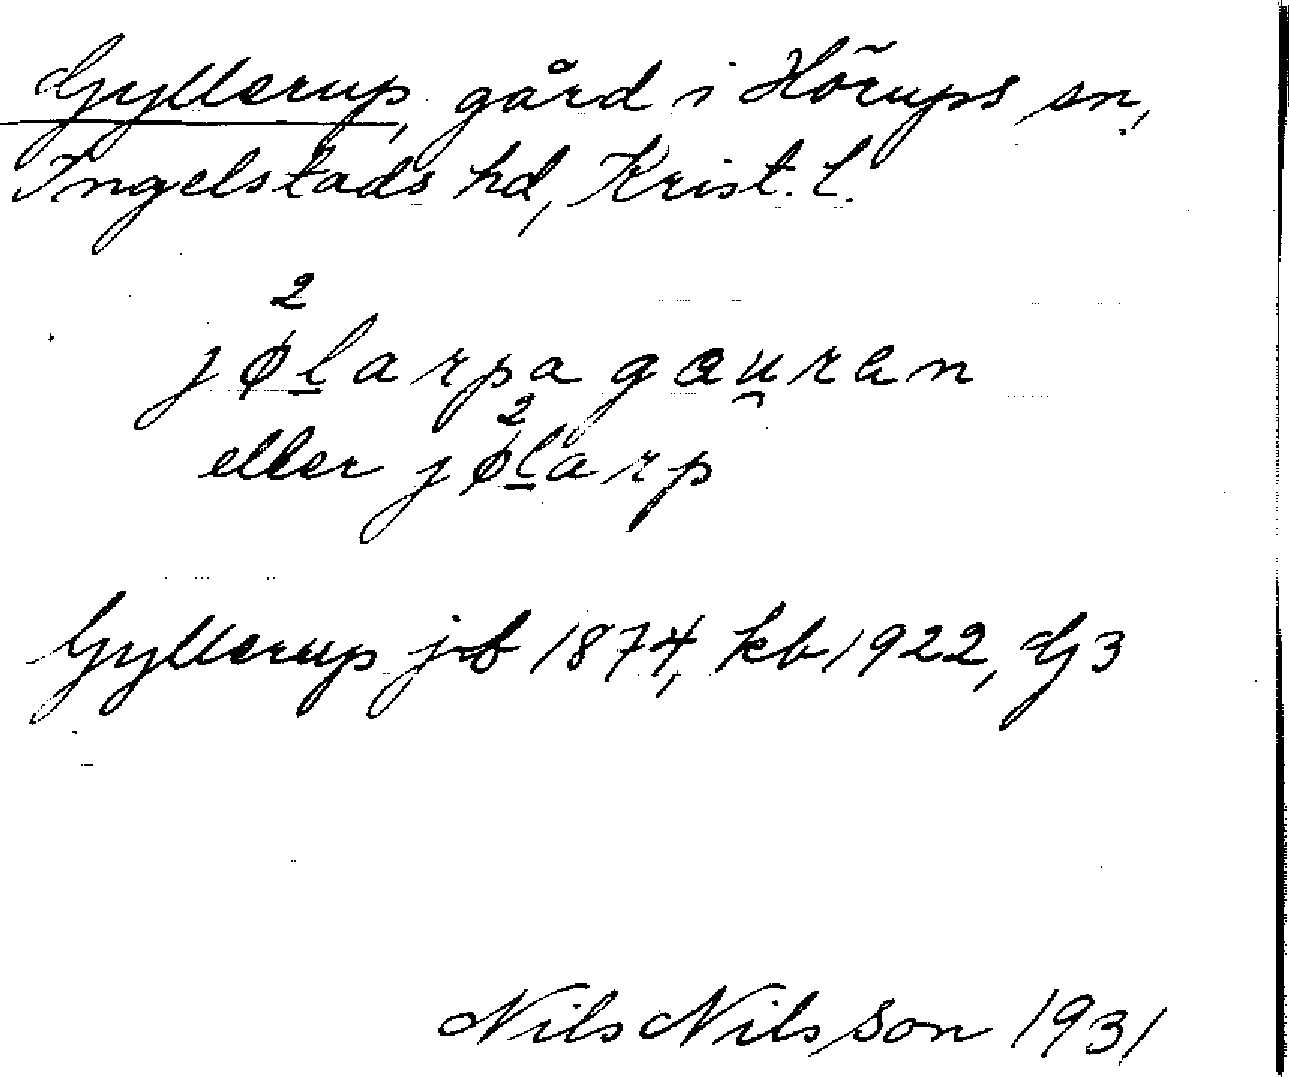 Gyllerup, gård i Hörups sn,
Ingelstads hd, Krist. l.
jø²l̲arpa gæu̯ran
eller jø²l̲arp
Gyllerup jrb 1874, kb 1922, G3
Nils Nilsson 1931